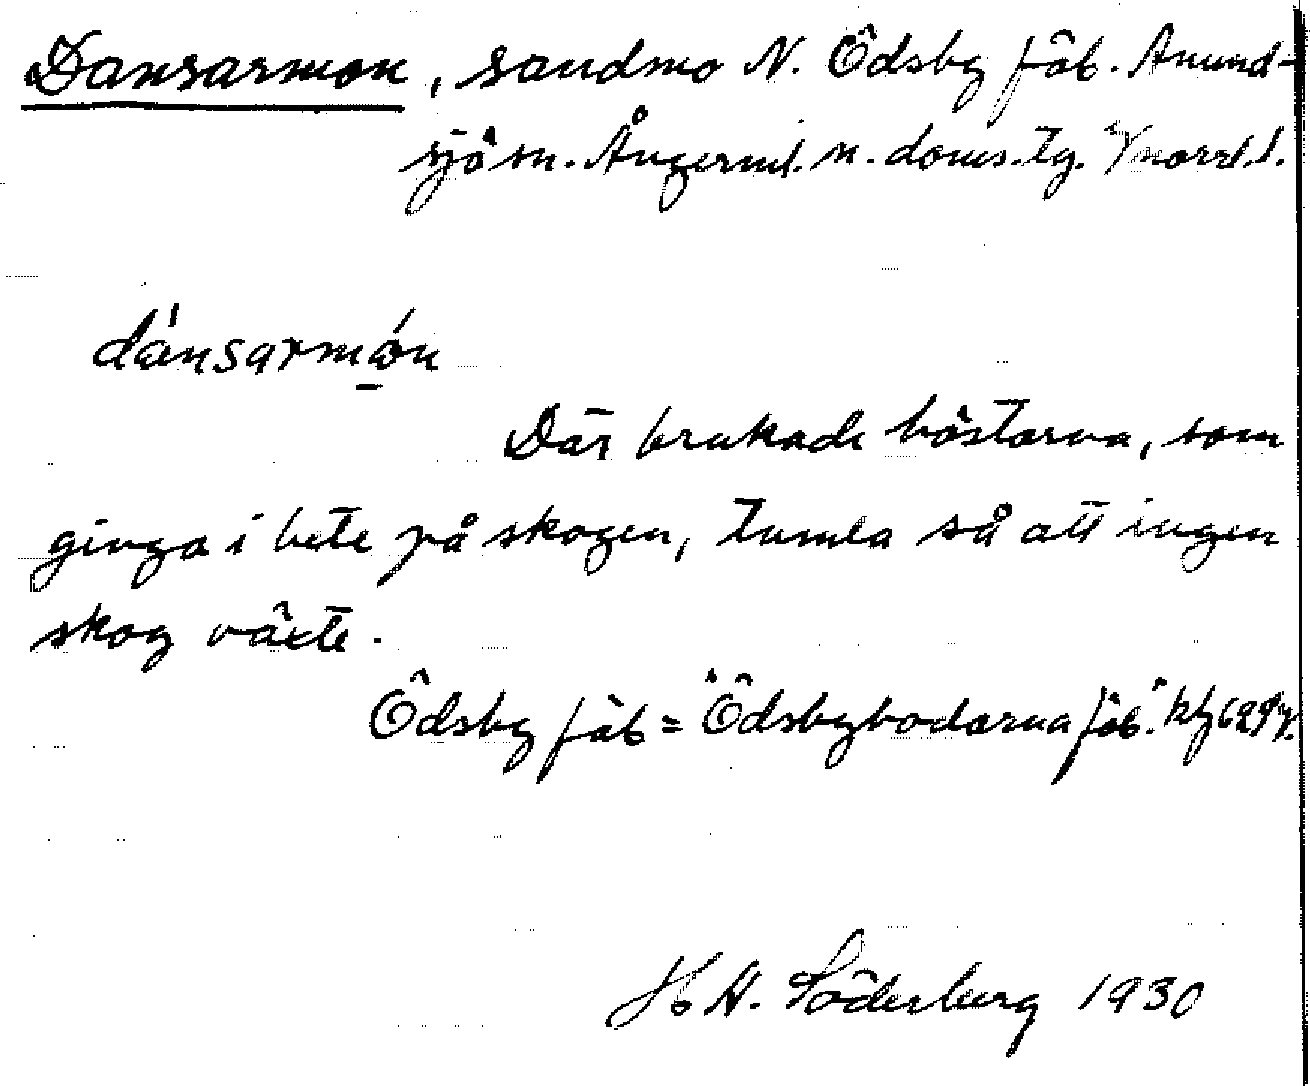 Dansarmon, sandmo N. Ödsby fäb. Anund-
sjö sn. Ångerml. n. doms. tg. V norrl. l.
dánsarmón
Där brukade hästarna, som
ginga i bete på skogen, tumla så att ingen
skog växte.
Ödsby fäb = "Ödsbybodarna fäb."
H. A. Söderberg 1930